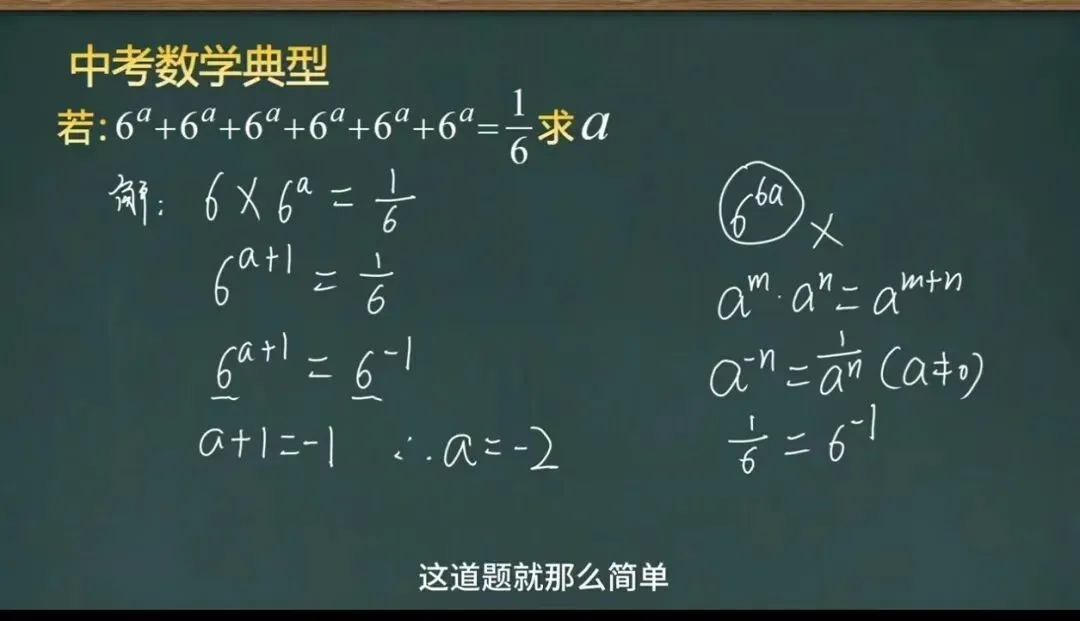 中考数学典型
若:6ᵃ+6ᵃ+6ᵃ+6ᵃ+6ᵃ+6ᵃ=1/6求a
解: 6×6ᵃ=1/6
6ᵃ⁺¹=1/6
6ᵃ⁺¹=6⁻¹
a+1=-1 ∴a=-2
6⁶ᵃ ×
aᵐ·aⁿ=aᵐ⁺ⁿ
a⁻ⁿ=1/aⁿ(a≠0)
1/6=6⁻¹
这道题就那么简单